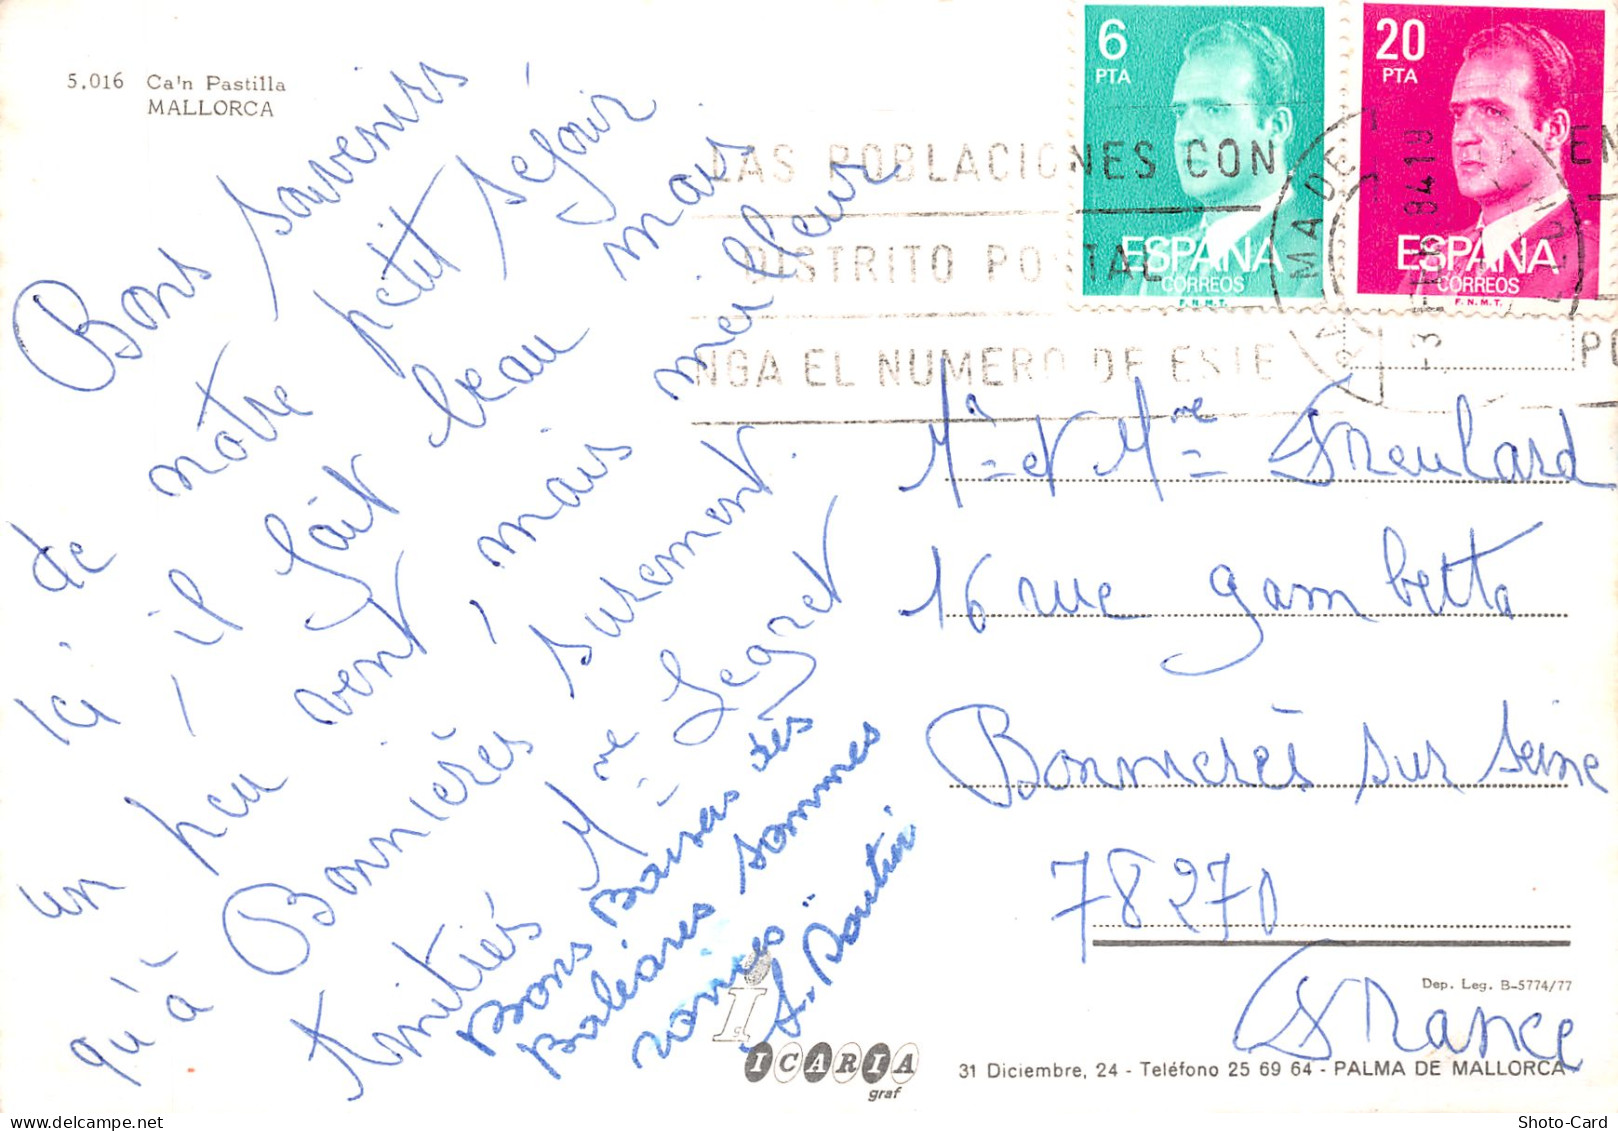 5.016 Ca'n Pastilla
MALLORCA
Bons souvenirs
de nôtre petit séjour
Ici, il fait beau mais
un peu vent, mais meilleur
qu'à Bonnières surement.
Amitiés Mme Legret
Bons Baisers des
Baléares sommes
A.
6
PTA
ESPAÑA
CORREOS
F.N.M.T.
20
PTA
ESPAÑA
CORREOS
F.N.M.T.
LAS POBLACIONES CON
DISTRITO POSTAL
NGA EL NUMERO DE ESTE
EN
Mr et Mme Freulard
16 rue gambetta
Bonnières sur Seine
78270
France
Dep. Leg. B-5774/77
ICARIA
graf
31 Diciembre, 24 - Teléfono 25 69 64 - PALMA DE MALLORCA
Shoto-Card